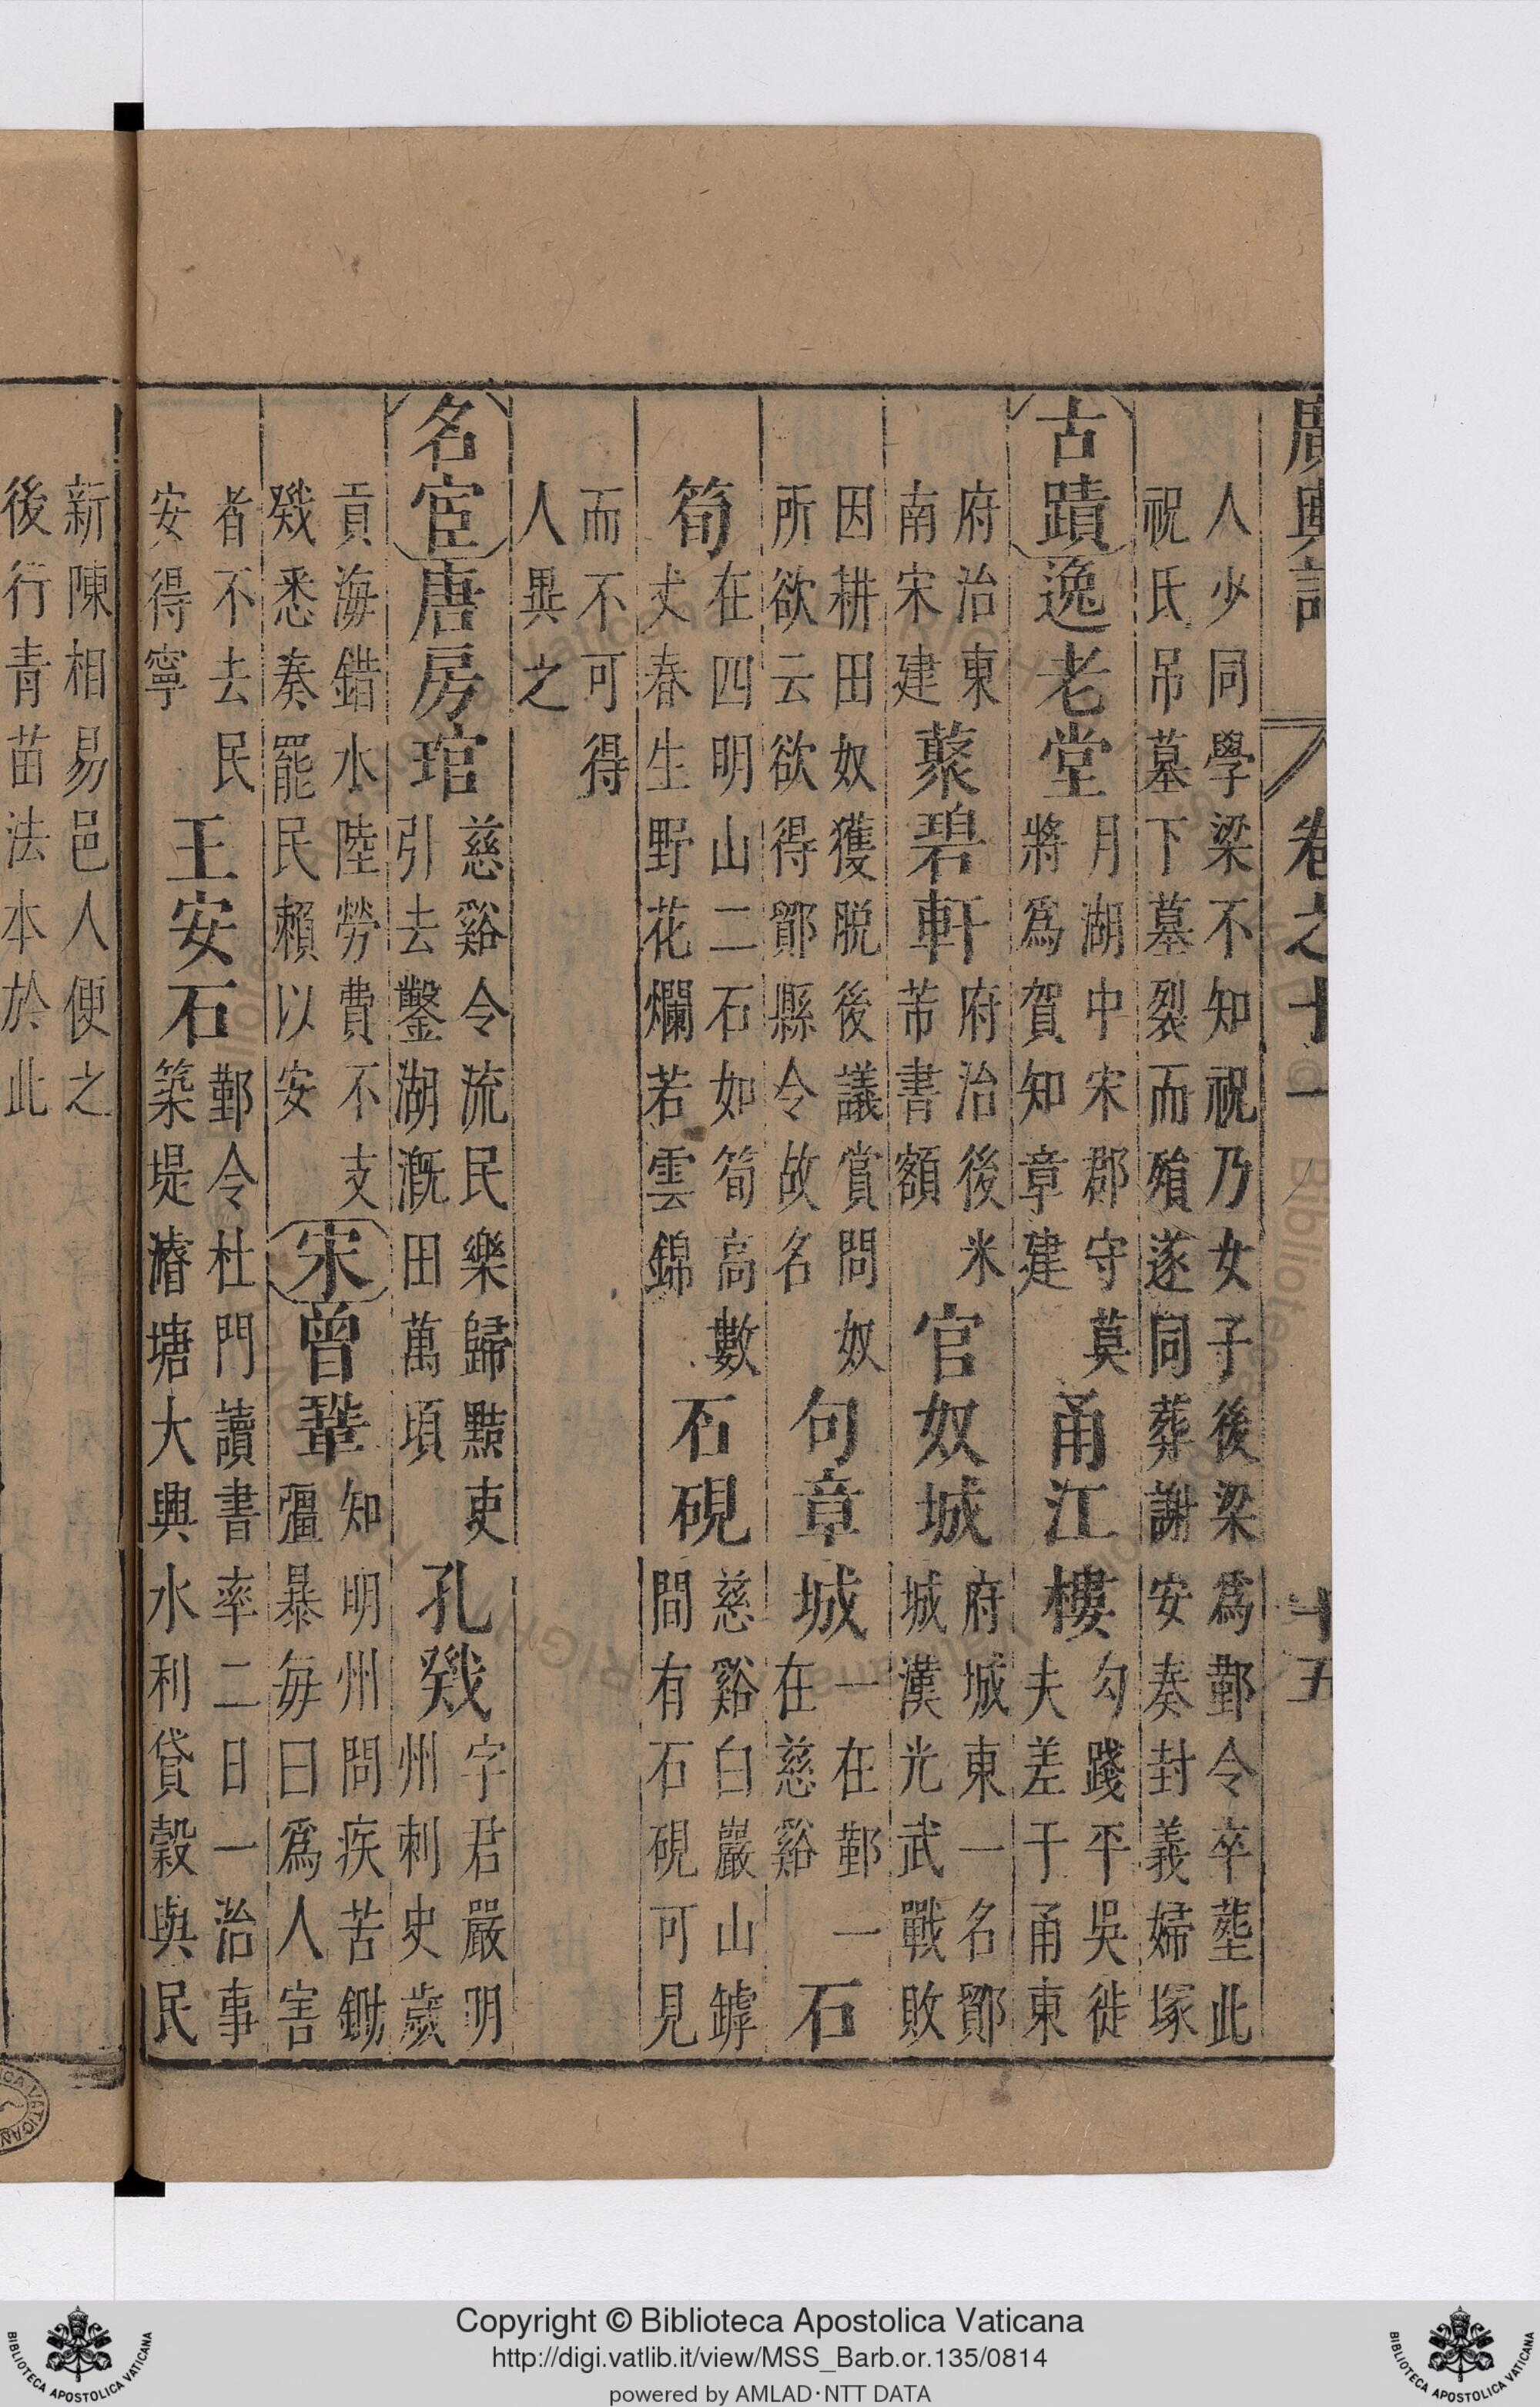 廣輿記 卷之十一 十五
人少同學梁不知祝乃女子後梁爲鄞令卒塟此
祝氏吊墓下墓裂而殞遂同葬謝安奏封義婦塚
古蹟 逸老堂 月湖中宋郡守莫將爲賀知章建 甬江樓 勾踐平吳徙夫差于甬東
府治東南宋建 蘂碧軒 府治後米芾書額 官奴城 府城東一名鄮城漢光武戰敗
因耕田奴獲脫後議賞問奴所欲云欲得鄮縣令故名 句章城 一在鄞一在慈谿 石
筍 在四明山二石如筍高數丈春生野花爛若雲錦 石硯 慈谿白巖山罅間有石硯可見
而不可得人異之
名宦 唐 房琯 慈谿令流民樂歸黠吏引去鑿湖漑田萬頃 孔戣 字君嚴明州刺史歲
貢海錯水陸勞費不支戣悉奏罷民賴以安 宋 曾鞏 知明州問疾苦鋤彊暴每曰爲人害
者不去民安得寧 王安石 鄞令杜門讀書率二日一治事築堤濬塘大興水利貸穀與民
新陳相易邑人便之
後行青苗法本於此
Copyright © Biblioteca Apostolica Vaticana
http://digi.vatlib.it/view/MSS_Barb.or.135/0814
powered by AMLAD·NTT DATA
BIBLIOTECA APOSTOLICA VATICANA
BIBLIOTECA APOSTOLICA VATICANA